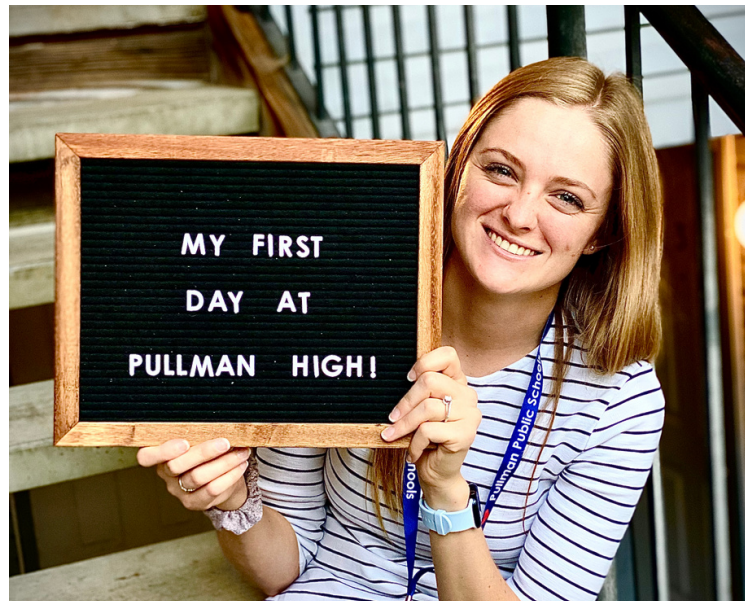 MY FIRST
DAY AT
PULLMAN HIGH!
Pullman Public Schools
hools